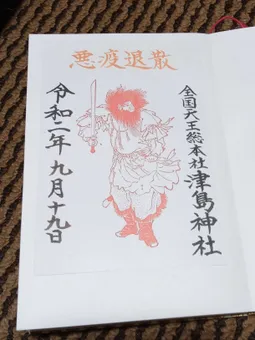 悪疫退散
全国天王総本社
津島神社
令和二年 九月十九日